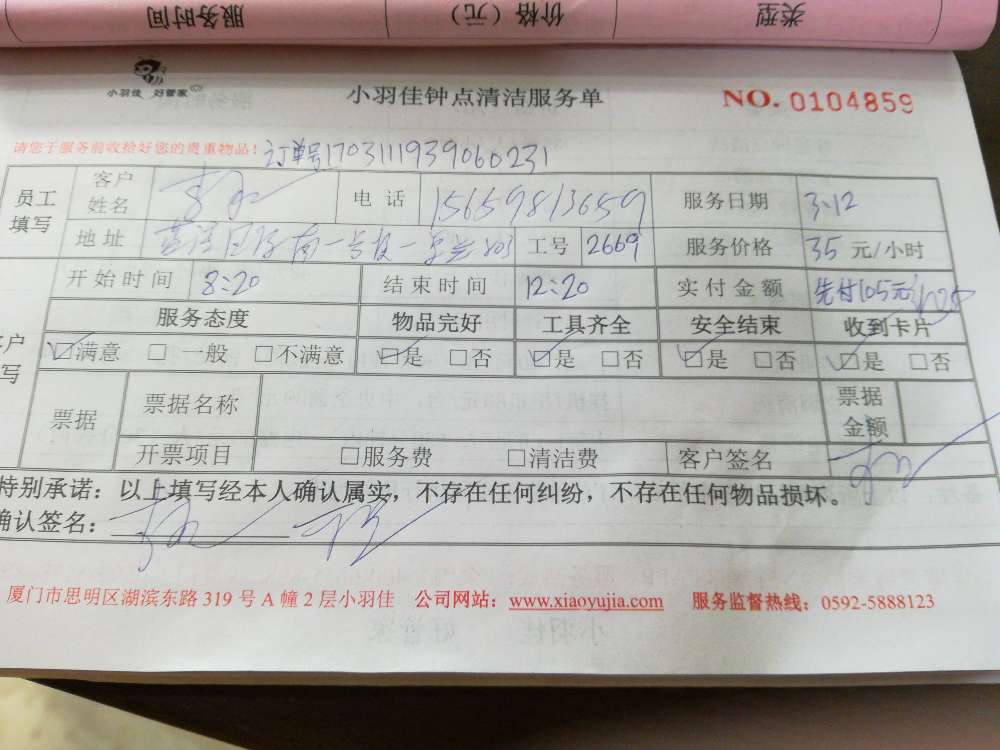 服务时间 价格（元） 类型
小羽佳 好管家
小羽佳钟点清洁服务单
NO. 0104859
请您于服务前收拾好您的贵重物品！
订单号1703111939060231
员工填写 客户姓名 电话 15659813659 服务日期 3.12
地址 工号 2669 服务价格 35 元/小时
开始时间 8:20 结束时间 12:20 实付金额 先付105元
服务态度 物品完好 工具齐全 安全结束 收到卡片
☑满意 □一般 □不满意 ☑是 □否 ☑是 □否 ☑是 □否 ☑是 □否
票据 票据名称 票据金额
开票项目 □服务费 □清洁费 客户签名
特别承诺：以上填写经本人确认属实，不存在任何纠纷，不存在任何物品损坏。
确认签名：
厦门市思明区湖滨东路 319 号 A 幢 2 层小羽佳 公司网站：www.xiaoyujia.com 服务监督热线：0592-5888123